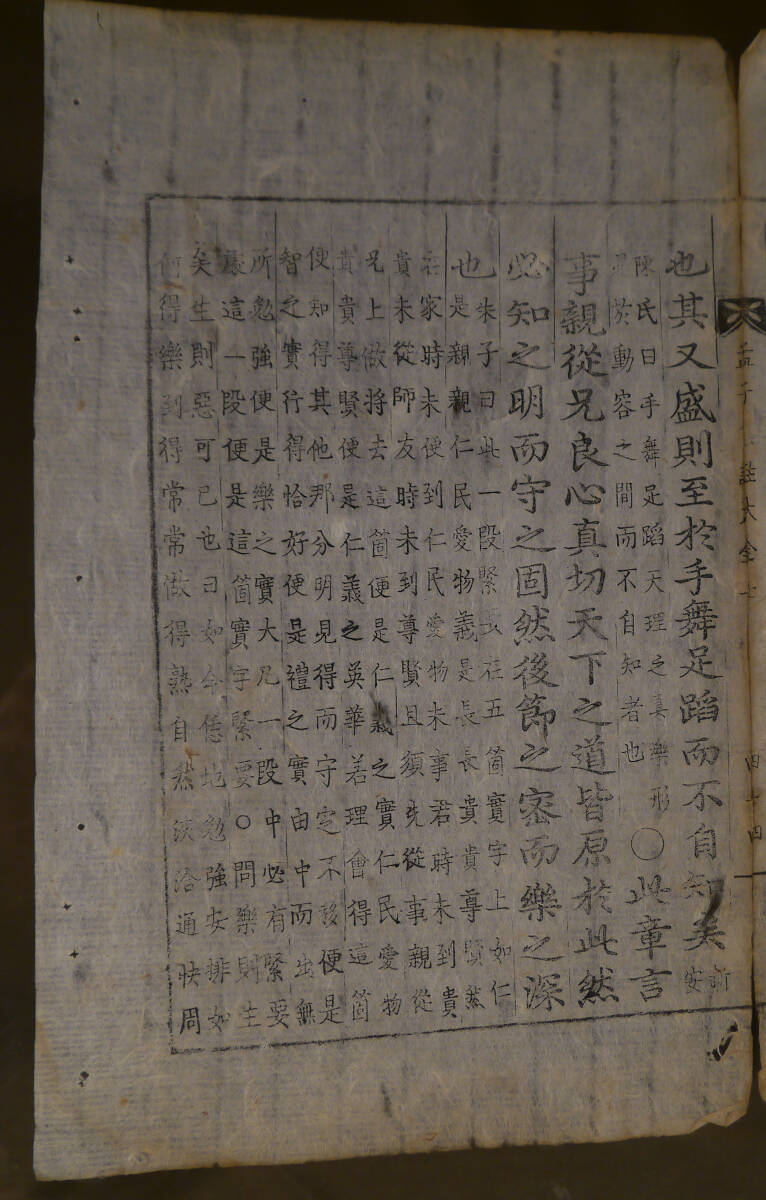 孟子 註大全七 四十四
也其又盛則至於手舞足蹈而不自知矣新
安
陳氏曰手舞足蹈天理之真樂形
見於動容之間而不自知者也
○此章言
事親從兄良心真切天下之道皆原於此然
必知之明而守之固然後節之密而樂之深
也
朱子曰此一段緊要在五箇實字上如仁
是親親仁民愛物義是長長貴貴尊賢然
在家時未便到仁民愛物未事君時未到貴
貴未從師友時未到尊賢且須先從事親從
兄上做將去這箇便是仁義之實仁民愛物
貴貴尊賢便是仁義之英華若理會得這箇
便知得其他那分明見得而守定不移便是
智之實行得恰好便是禮之實由中而出無
所勉強便是樂之實大凡一段中必有緊要
處這一段便是這箇實字緊要○問樂則生
矣生則惡可已也曰如今恁地勉強安排如
何得樂到得常常做得熟自然浹洽通快周